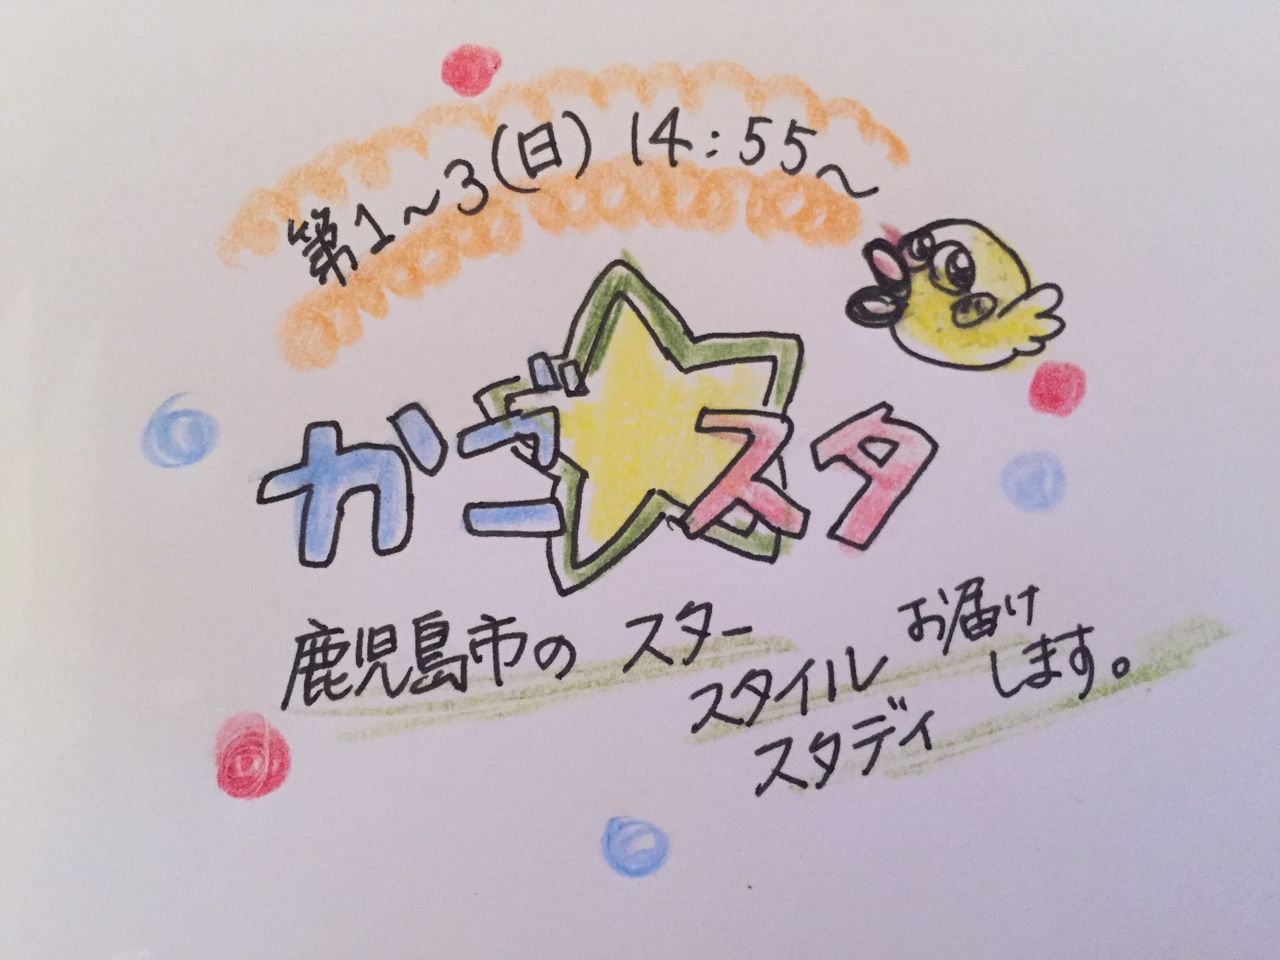 第1~3(日) 14:55~
かご★スタ
鹿児島市の スター
スタイル
スタディ
お届け
します。